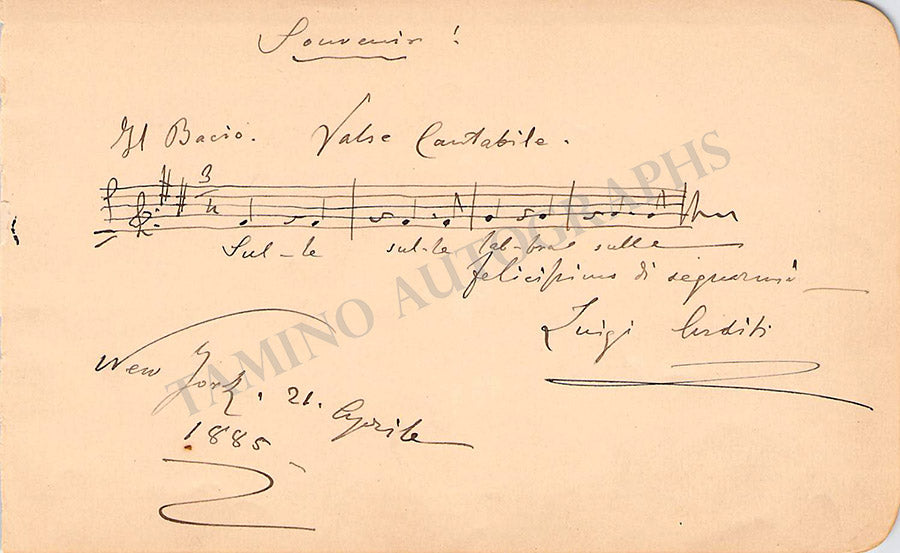 Souvenir !
Il Bacio. Valse Cantabile.
3
4
Sul-le sul-le lab-bra sulle
felicissimo di segnarmi
Luigi Arditi
New York. 21. Aprile
1885
TAMINO AUTOGRAPHS